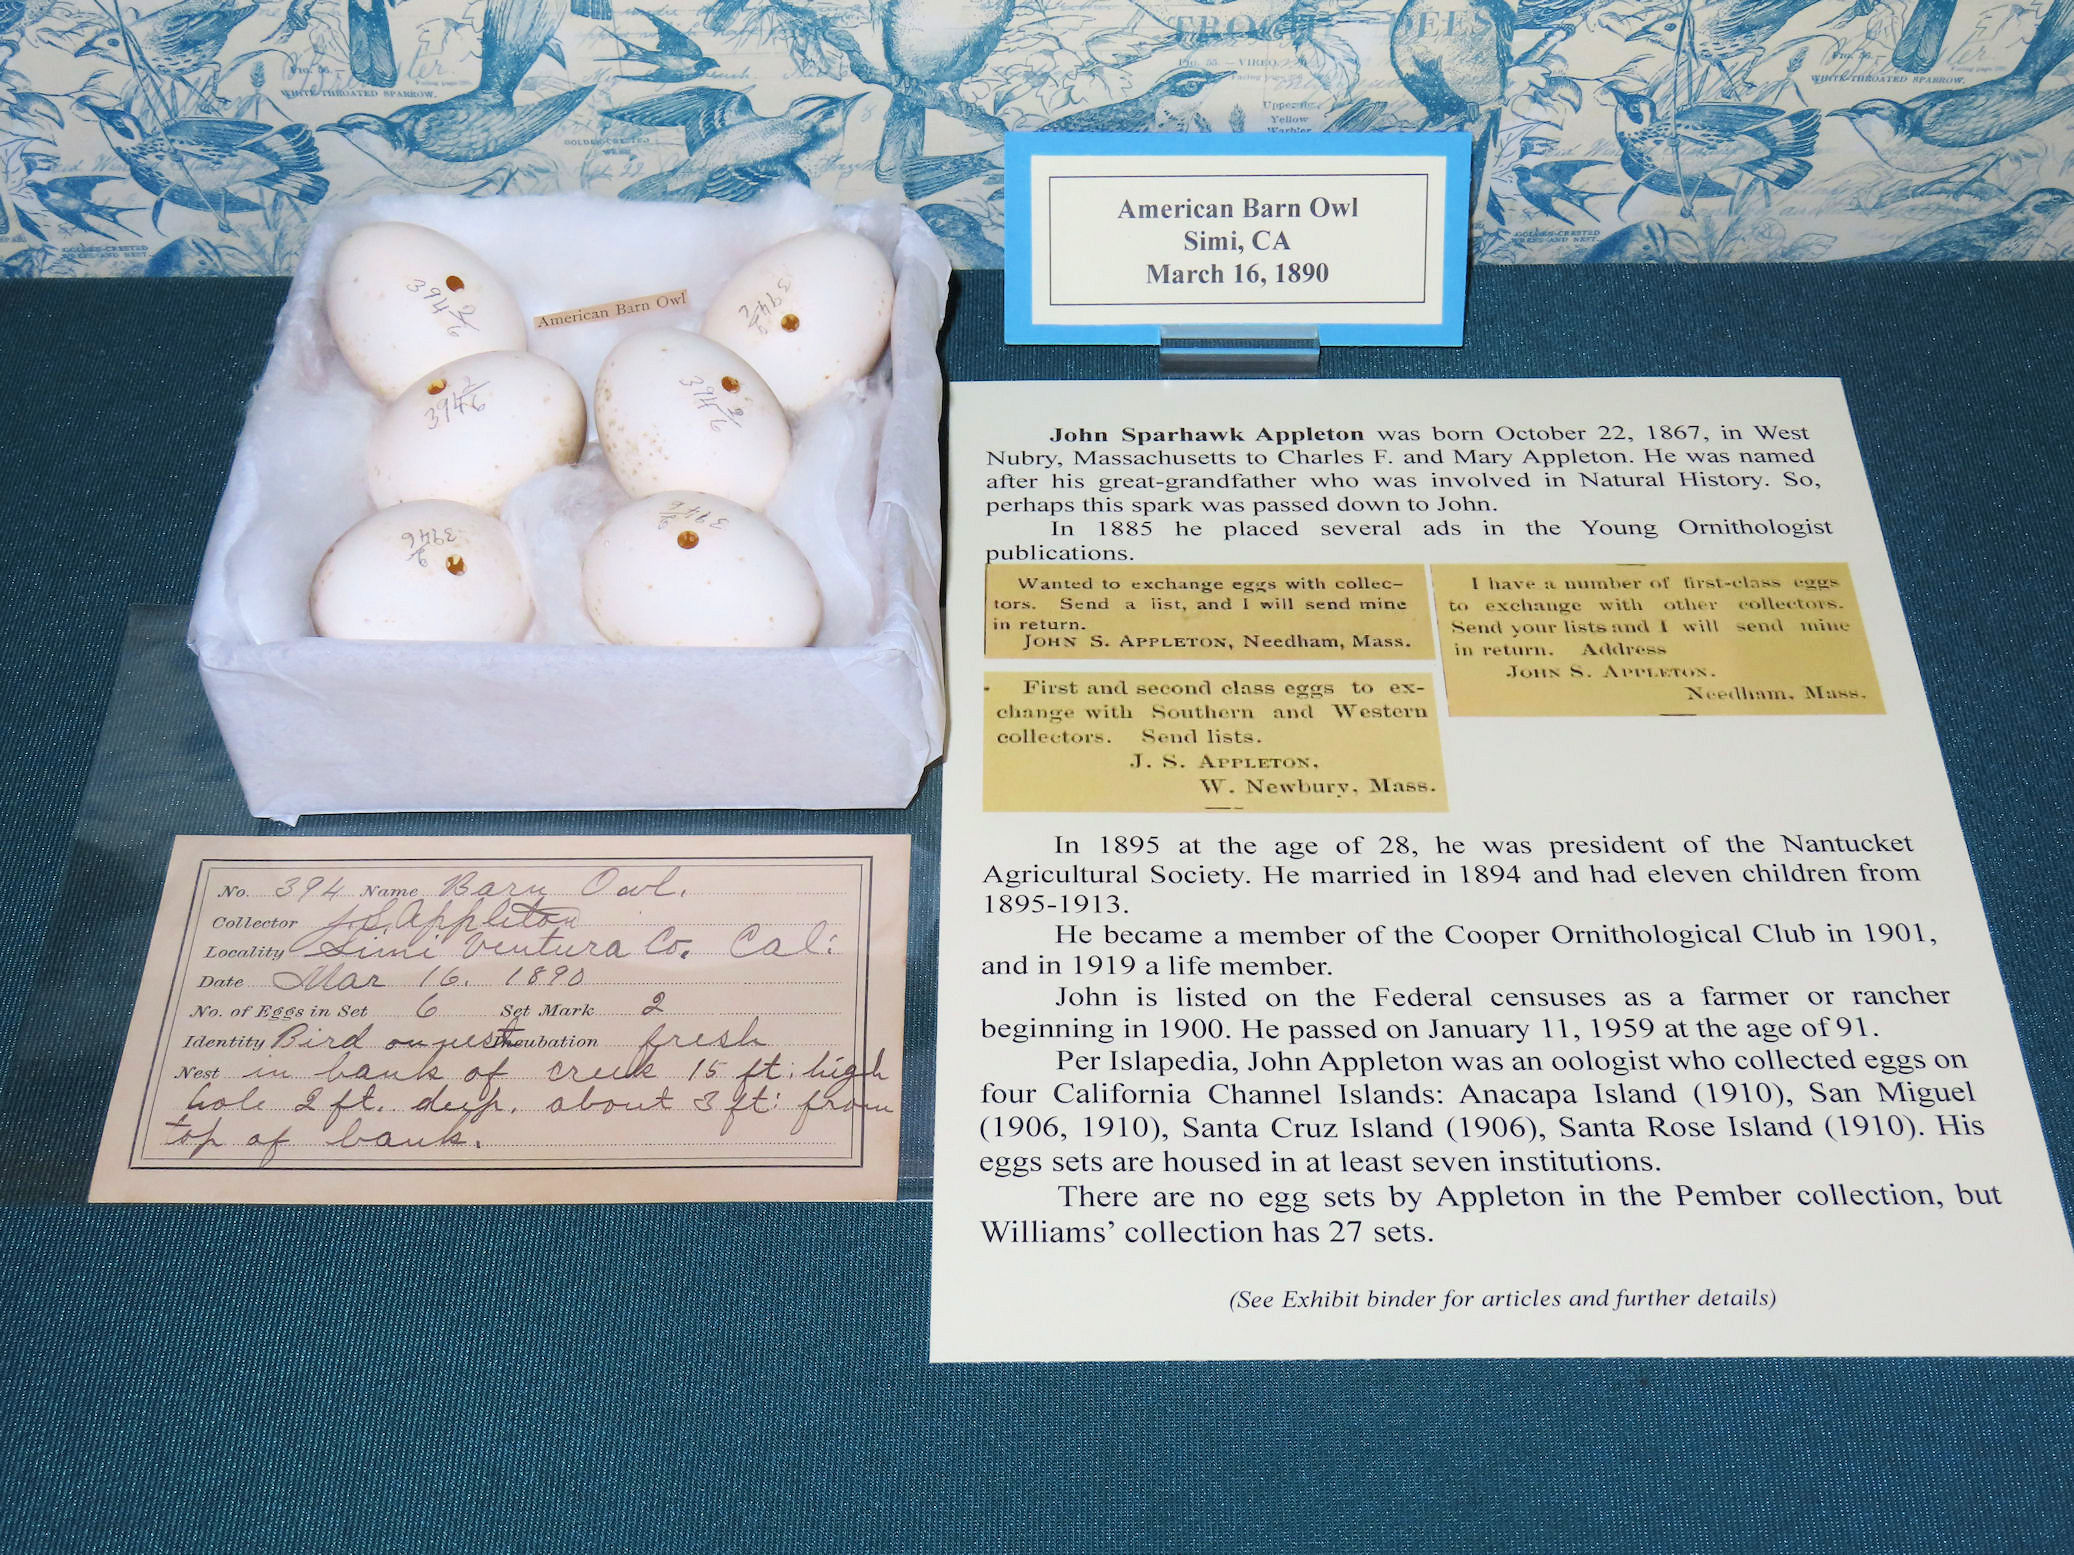 TROCHI DEES
Fig. 55. — VIREO.
WHITE-THROATED SPARROW.
Upper fig.
Yellow
Warbler
WHITE-THROATED SPARROW.
GOLDEN-CRESTED
GOLDEN-CRESTED
WREN AND NEST.
GOLDEN-CRESTED
WREN AND NEST.
American Barn Owl
Simi, CA
March 16, 1890
American Barn Owl
394 2/6
394 2/6
394 2/6
394 2/6
394 2/6
394 2/6
No. 394 Name Barn Owl.
Collector J.S. Appleton
Locality Simi Ventura Co. Cal:
Date Mar 16. 1890
No. of Eggs in Set 6 Set Mark 2
Identity Bird on nest Incubation fresh
Nest in bank of creek 15 ft: high
hole 2 ft. deep. about 3 ft: from
top of bank.
John Sparhawk Appleton was born October 22, 1867, in West
Nubry, Massachusetts to Charles F. and Mary Appleton. He was named
after his great-grandfather who was involved in Natural History. So,
perhaps this spark was passed down to John.
In 1885 he placed several ads in the Young Ornithologist
publications.
Wanted to exchange eggs with collec-
tors. Send a list, and I will send mine
in return.
JOHN S. APPLETON, Needham, Mass.
I have a number of first-class eggs
to exchange with other collectors.
Send your lists and I will send mine
in return. Address
JOHN S. APPLETON.
Needham, Mass.
First and second class eggs to ex-
change with Southern and Western
collectors. Send lists.
J. S. APPLETON,
W. Newbury, Mass.
In 1895 at the age of 28, he was president of the Nantucket
Agricultural Society. He married in 1894 and had eleven children from
1895-1913.
He became a member of the Cooper Ornithological Club in 1901,
and in 1919 a life member.
John is listed on the Federal censuses as a farmer or rancher
beginning in 1900. He passed on January 11, 1959 at the age of 91.
Per Islapedia, John Appleton was an oologist who collected eggs on
four California Channel Islands: Anacapa Island (1910), San Miguel
(1906, 1910), Santa Cruz Island (1906), Santa Rose Island (1910). His
eggs sets are housed in at least seven institutions.
There are no egg sets by Appleton in the Pember collection, but
Williams' collection has 27 sets.
(See Exhibit binder for articles and further details)